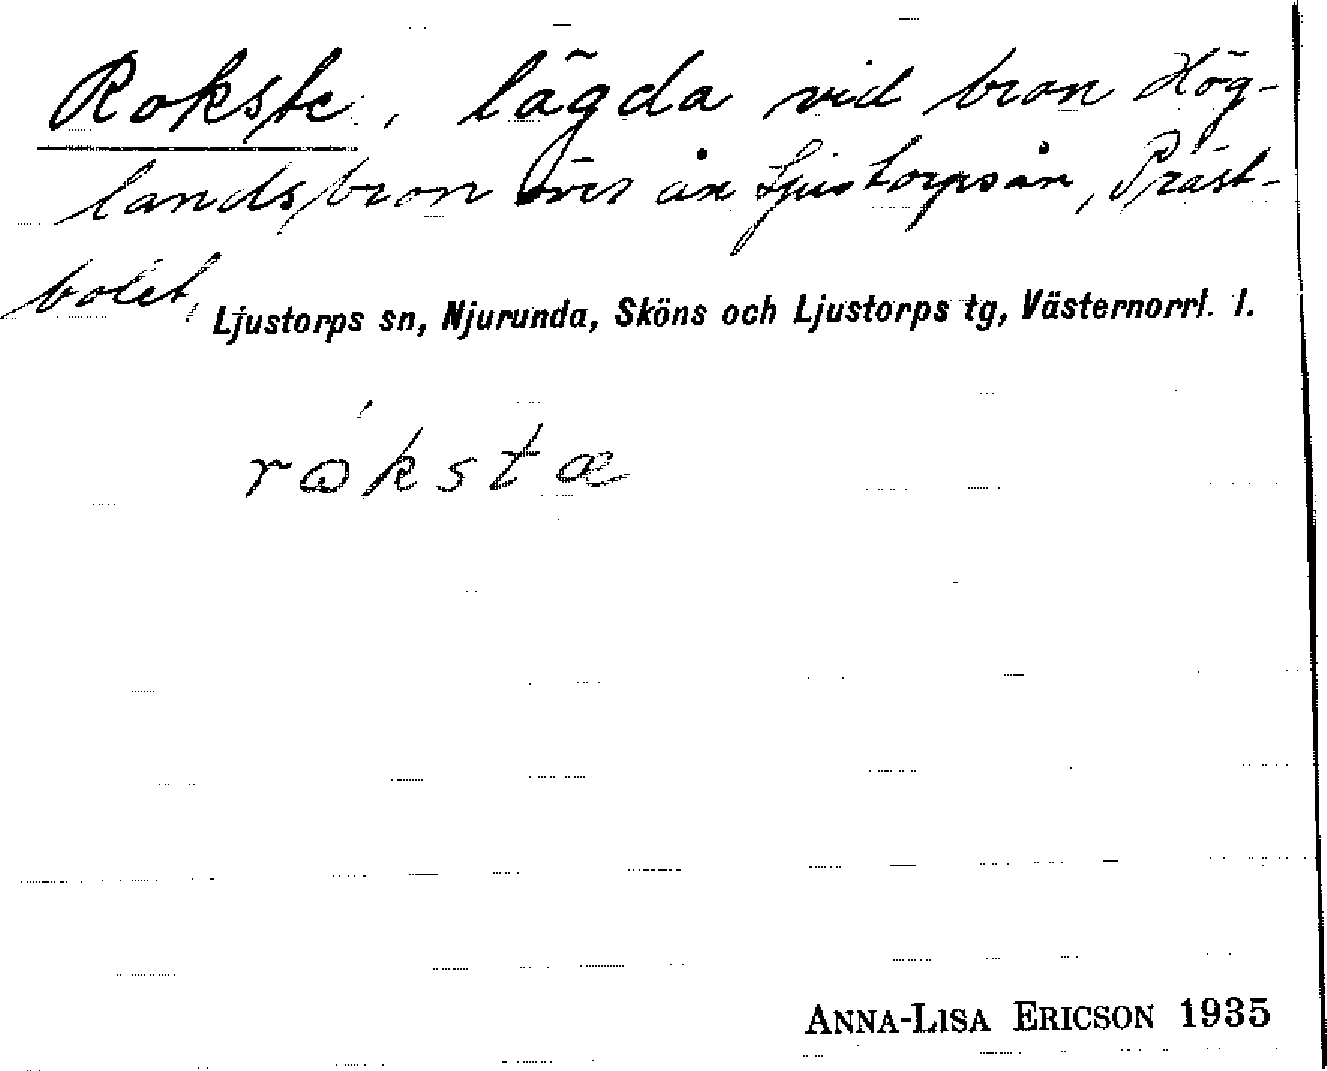 Rokste, lägda vid bron Hög-
landsbron över ån Ljustorpsån, Präst-
bolet,
Ljustorps sn, Njurunda, Sköns och Ljustorps tg, Västernorrl. l.
ŕωkstæ
ANNA-LISA ERICSON 1935